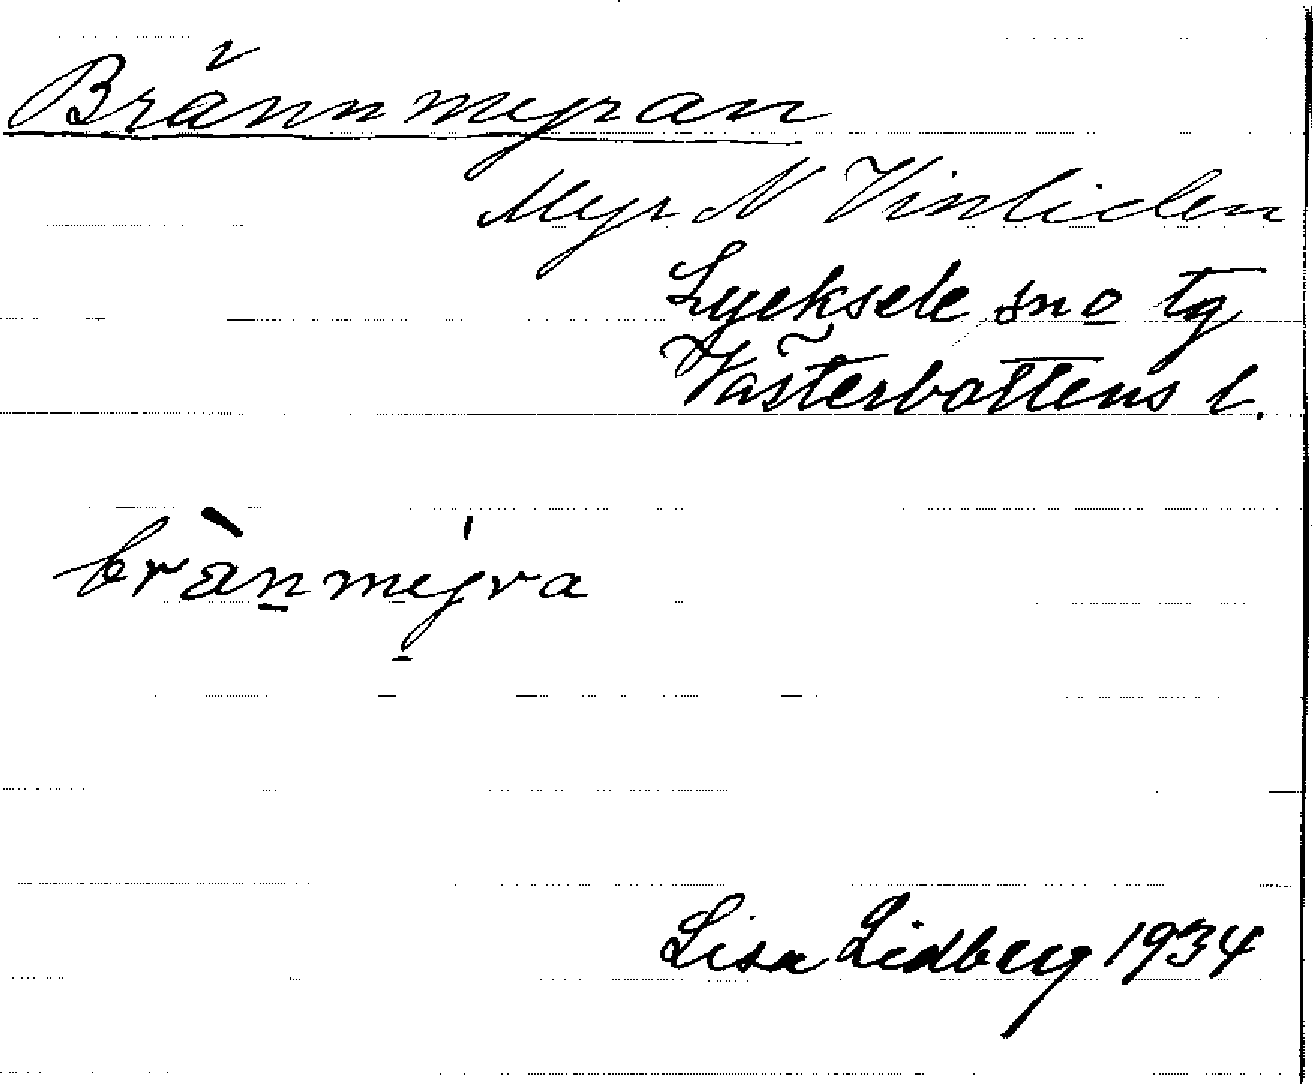 Brännmyran
Myr N Vinliden
Lycksele sn o tg
Västerbottens l.
brànmýra
Lisa Lidberg 1934